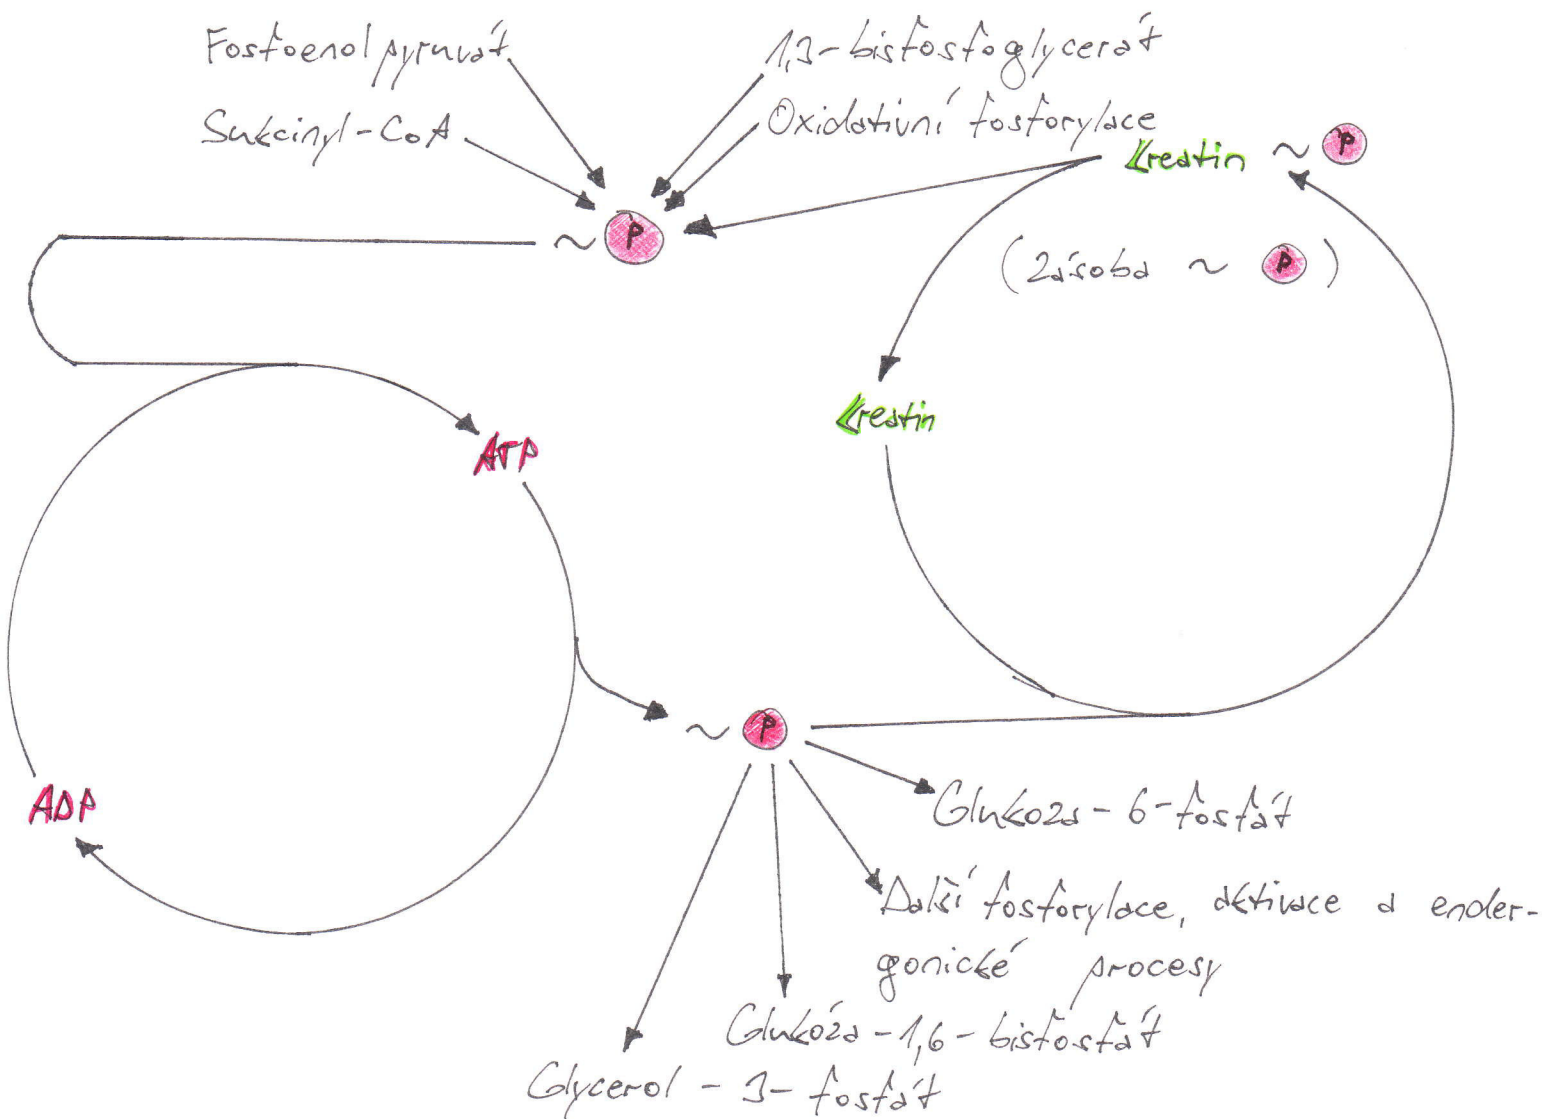 Fosfoenolpyruvát
1,3-bisfosfoglycerát
Sukcinyl-CoA
Oxidativní fosforylace
Kreatin ~ P
~ P
(Zásoba ~ P)
Kreatin
ATP
~ P
ADP
Glukoza-6-fosfát
Další fosforylace, aktivace a ender-
gonické procesy
Glukóza-1,6-bisfosfát
Glycerol-3-fosfát